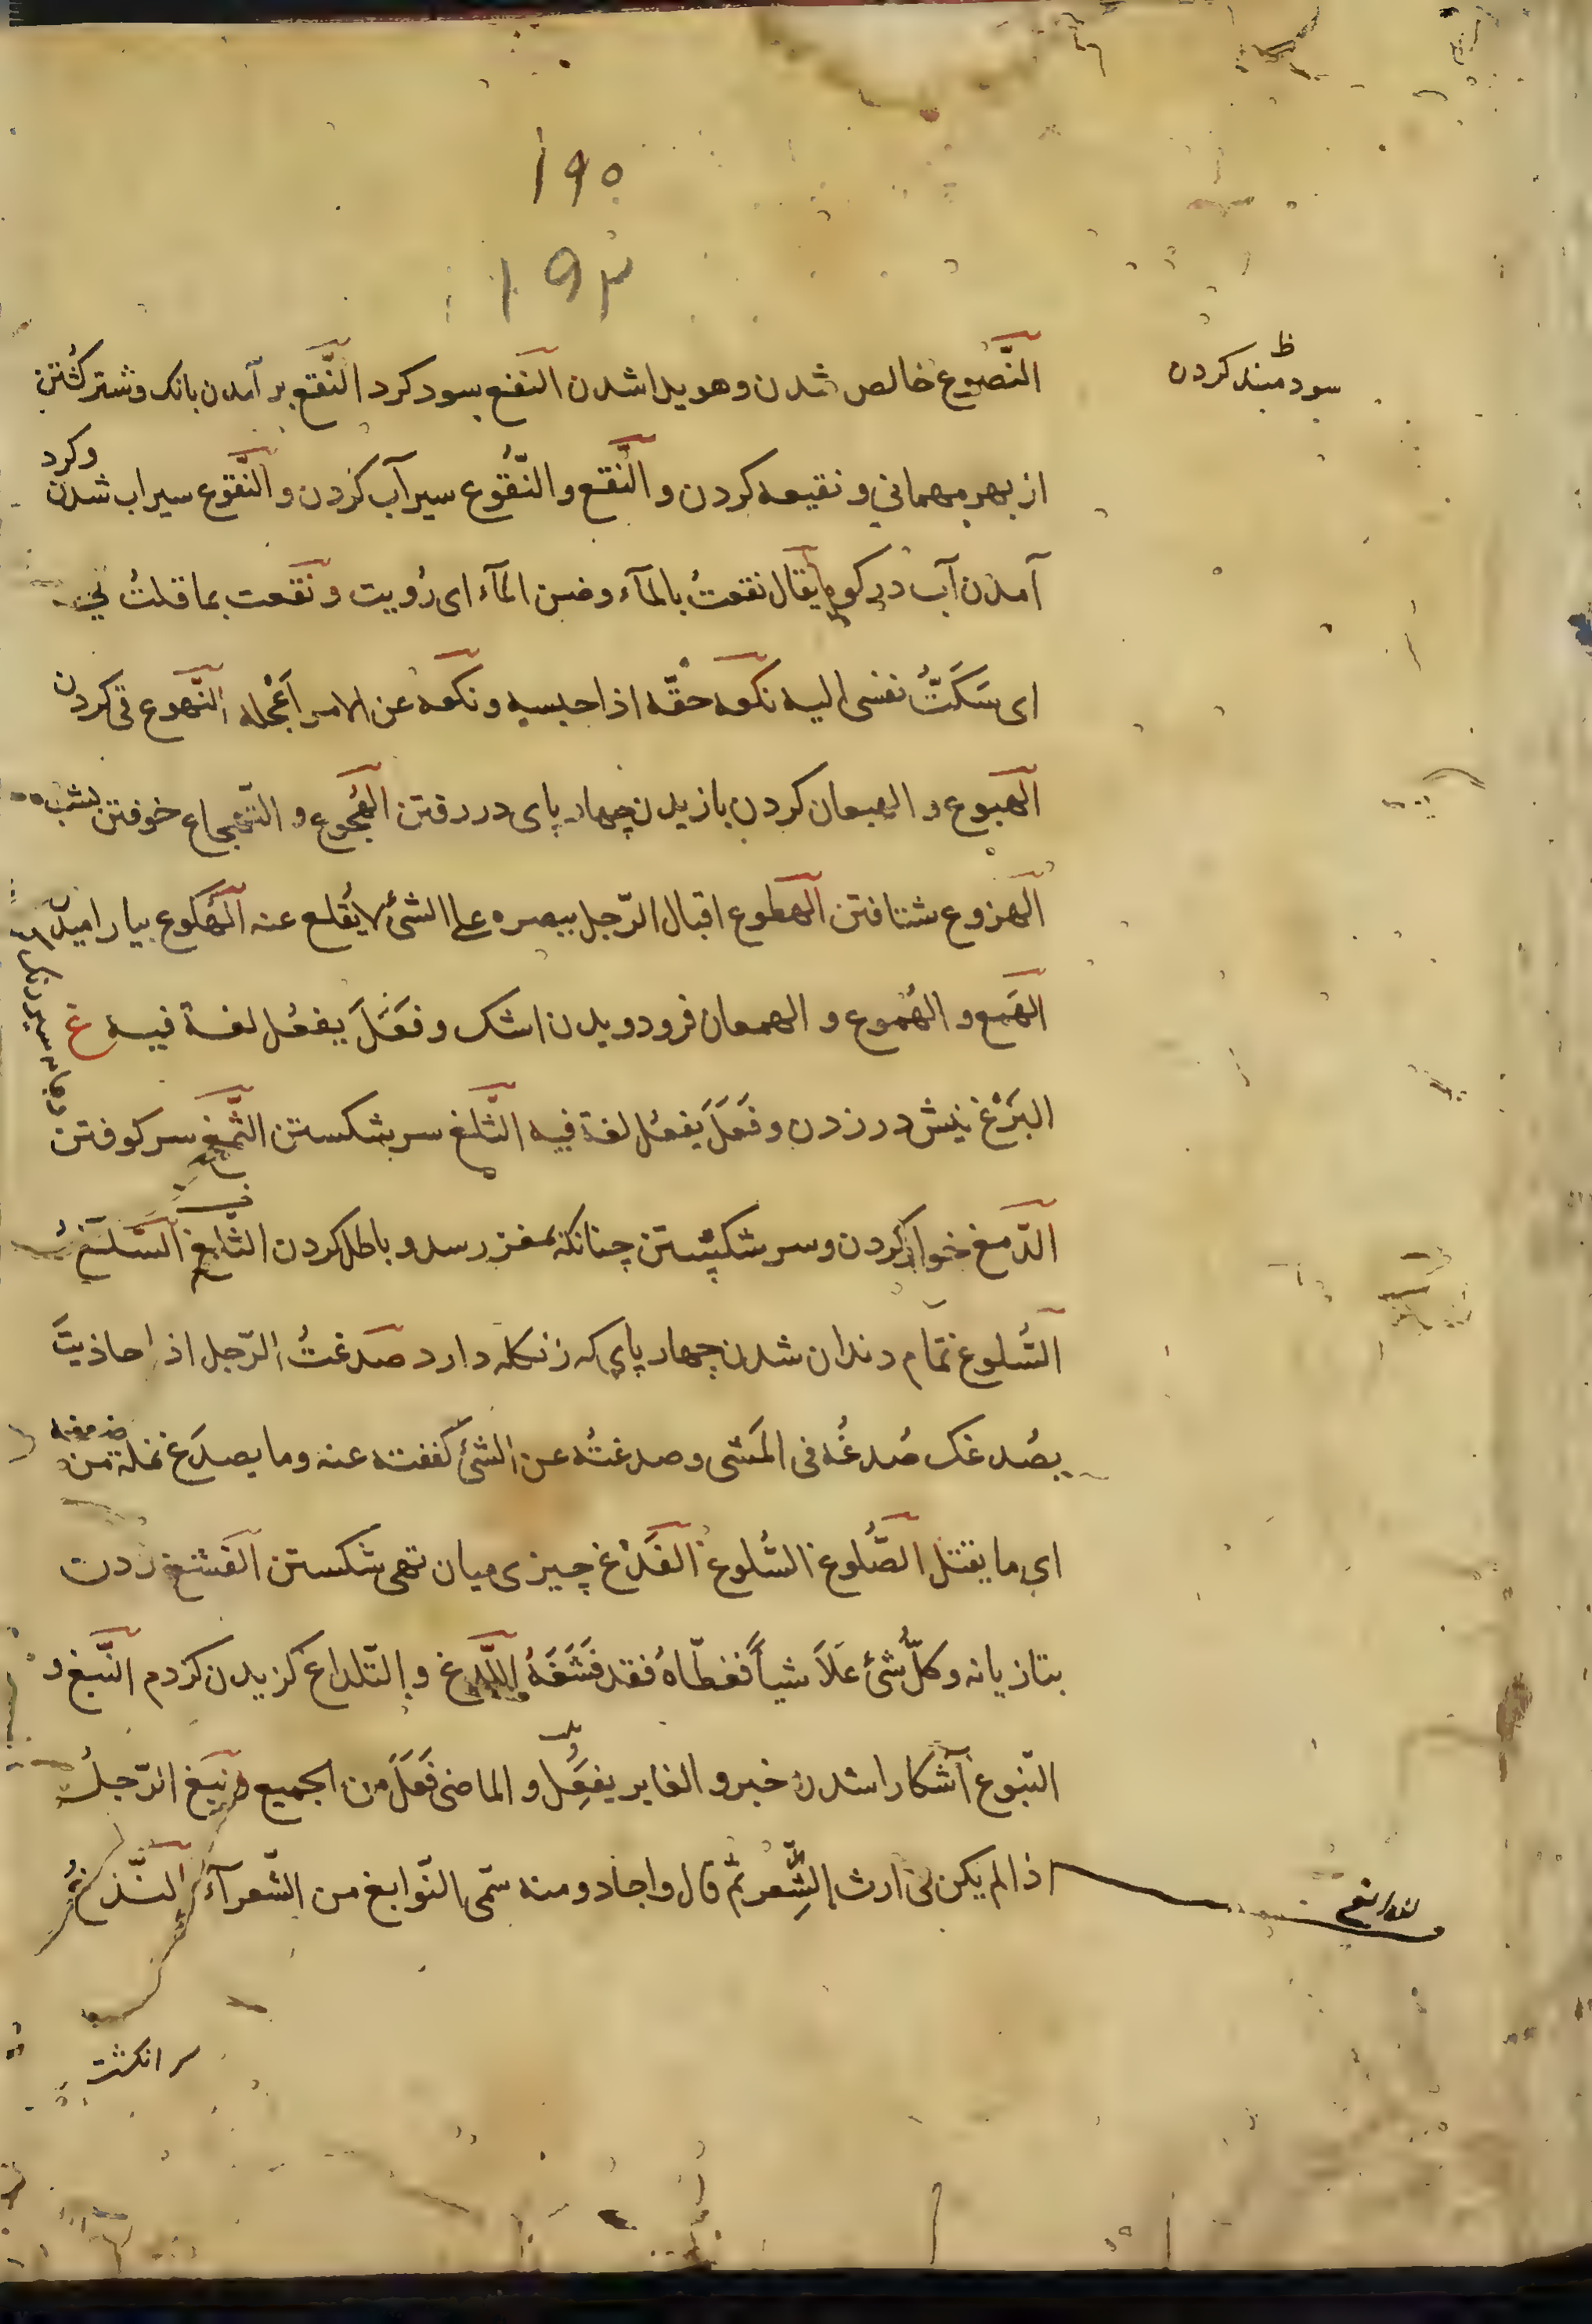 ۱۹۵
۱۹۳
النُّصوع خالص شدن و هویدا شدن النفع سود کرد النَّقع بر آمدن بانک و شتر کُشتن
سودمند کردن
از بهر مهمانی و نقیعه کردن و النَّقع و النُّقُوع سیرآب کردن و النُّقوع سیراب شدن وکرد
آمدن آب در کو یقال نقعتُ بالمآء و من المآء ای رُویت و نقعت بما قلتُ لی
ای سَکَتَتْ نفسی الیه نکعه حقّه اذا حبسه و نکعه عن الامر اَعْجله التّهوع قی کردن
الهبوع و الهبعان کردن بازیدن چهار پای در رفتن الهُجوع و التّهجاع خوفتن بشب
الهزوع شتافتن الهطوع اقبال الرّجل ببصره علی الشئ لا یُقلع عنه الهُکوع بیارامیدن
الهَمع و الهُموع و الهمعان فرو دویدن اشک و فَعَلَ یفعُل لغة فیه غ
البَزْغ نیش در زدن و فَعَلَ یفعُل لغة فیه الثَّلغ سر بشکستن الثَّمغ سر کوفتن
الدّمغ خوار کردن و سر شکستن چنانکه بمغز رسد و باطل کردن السَّلغ
السُّلوغ تمام دندان شدن چهار پای که زنکله دارد صدغتُ الرّجل اذا حاذیتَ
بصُدغک صُدغُه فی المَشی و صدغتُه عن الشئ کففته عنه و ما یصدَغ نملة من ضعفه
ای ما یقتل الصُّلوغ السُّلوغ الفَدْغ چیزی میان تهی شکستن الفَشغ زدن
بتازیانه و کلُّ شئ عَلاَ شیأً فغطّاهُ فقد فَشَغَهُ اللَّدغ و التّلداغ کزیدن کژدم النَّبغ و
النّبوغ آشکارا شدن خبر و الغابر یفعُِل و الماضی فَعَلَ من الجمیع و نَبَغ الرّجلُ
اذا لم یکن فی ارث الشِّعر ثمّ قال و اجاد و منه سمّی النّوابغ من الشّعرآء النَّدغ
سر انکشت